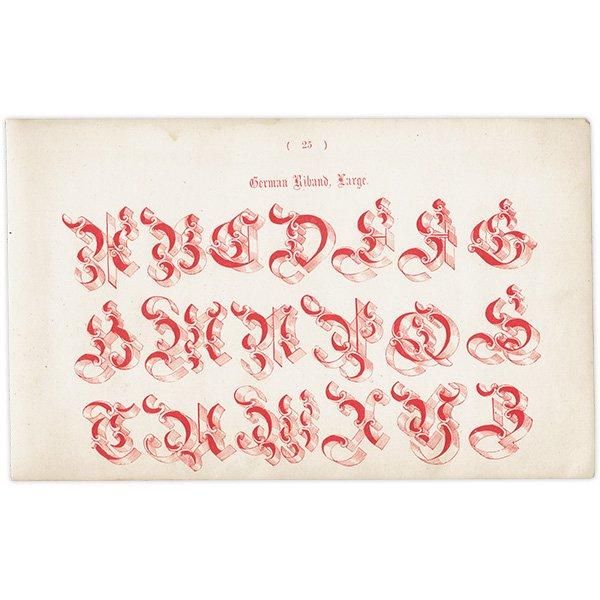 ( 25 )
German Riband, Large.
A B C D E G
M N P Q S
T W X Y Z